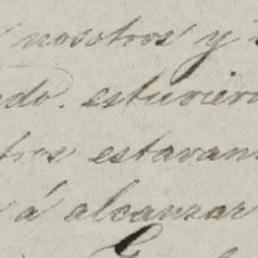 nosotros y
edo. estuvier
tros estavan
á alcanzar